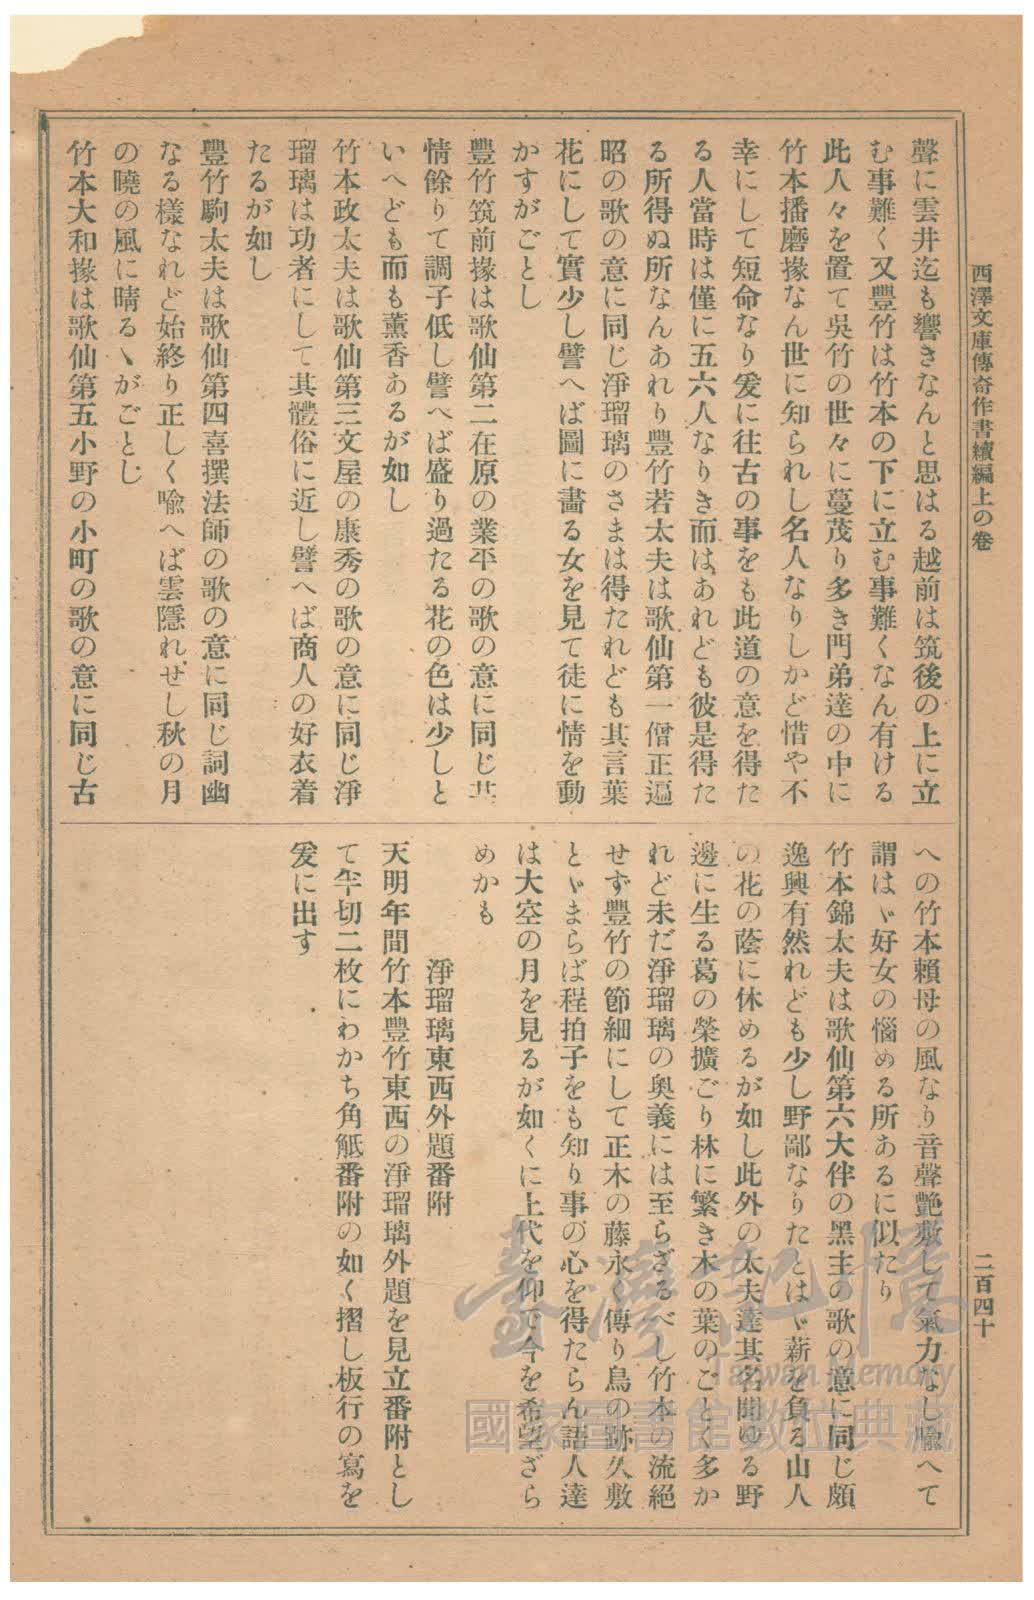 西澤文庫傳奇作書續編上の卷
二百四十
聲に雲井迄も響きなんと思はる越前は筑後の上に立
む事難く又豐竹は竹本の下に立む事難くなん有ける
此人々を置て吳竹の世々に蔓茂り多き門弟達の中に
竹本播磨掾なん世に知られし名人なりしかど惜や不
幸にして短命なり爰に往古の事をも此道の意を得た
る人當時は僅に五六人なりき而はあれども彼是得た
る所得ぬ所なんあれり豐竹若太夫は歌仙第一僧正遍
昭の歌の意に同じ淨瑠璃のさまは得たれども其言葉
花にして實少し譬へば圖に畵る女を見て徒に情を動
かすがごとし
豐竹筑前掾は歌仙第二在原の業平の歌の意に同じ其
情餘りて調子低し譬へば盛り過たる花の色は少しと
いへども而も薫香あるが如し
竹本政太夫は歌仙第三文屋の康秀の歌の意に同じ淨
瑠璃は功者にして其體俗に近し譬へば商人の好衣着
たるが如し
豐竹駒太夫は歌仙第四喜撰法師の歌の意に同じ詞幽
なる樣なれど始終り正しく喩へば雲隱れせし秋の月
の曉の風に晴るゝがごとし
竹本大和掾は歌仙第五小野の小町の歌の意に同じ古
への竹本賴母の風なり音聲艷敷して氣力なし喩へて
謂はゞ好女の惱める所あるに似たり
竹本錦太夫は歌仙第六大伴の黑主の歌の意に同じ頗
逸興有然れども少し野鄙なりたとはゞ薪を負る山人
の花の蔭に休めるが如し此外の太夫達其名聞ゆる野
邊に生る葛の榮擴ごり林に繁き木の葉のごとく多か
れど未だ淨瑠璃の奥義には至らざるべし竹本の流絕
せず豐竹の節細にして正木の藤永く傳り鳥の跡久敷
とゞまらば程拍子をも知り事の心を得たらん語人達
は大空の月を見るが如くに上代を仰て今を希望ざら
めかも
淨瑠璃東西外題番附
天明年間竹本豐竹東西の淨瑠璃外題を見立番附とし
て半切二枚にわかち角觝番附の如く摺し板行の寫を
爰に出す
臺灣記憶
Taiwan Memory
國家圖書館數位典藏